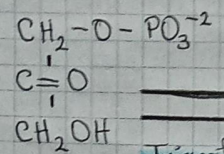 CH₂-O-PO₃⁻²
C=O
CH₂OH